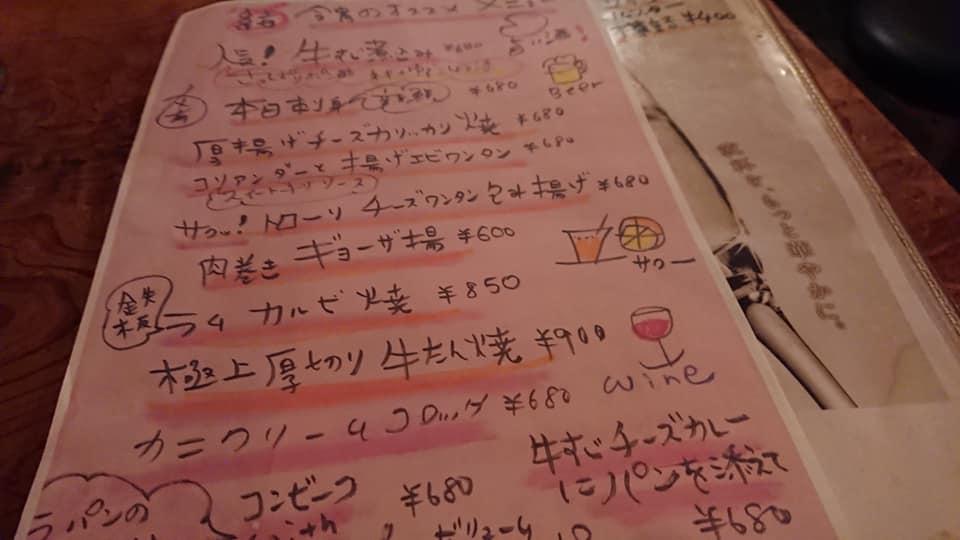 今宵のオススメ メニュー
人気! 牛すじ煮込み ¥680
¥400
Beer
本日刺身 ¥680
厚揚げチーズカリッカリ焼 ¥680
コリアンダーと揚げエビワンタン ¥680
スイートチリソース
サクッ!トローリ チーズワンタン包み揚げ ¥680
肉巻き ギョーザ揚 ¥600
サワー
鉄板
ラム カルビ焼 ¥850
極上厚切り牛たん焼 ¥900
wine
カニクリームコロッケ ¥680
牛すじチーズカレー
にパンを添えて
¥680
コンビーフ ¥680
パンの
ボリューム